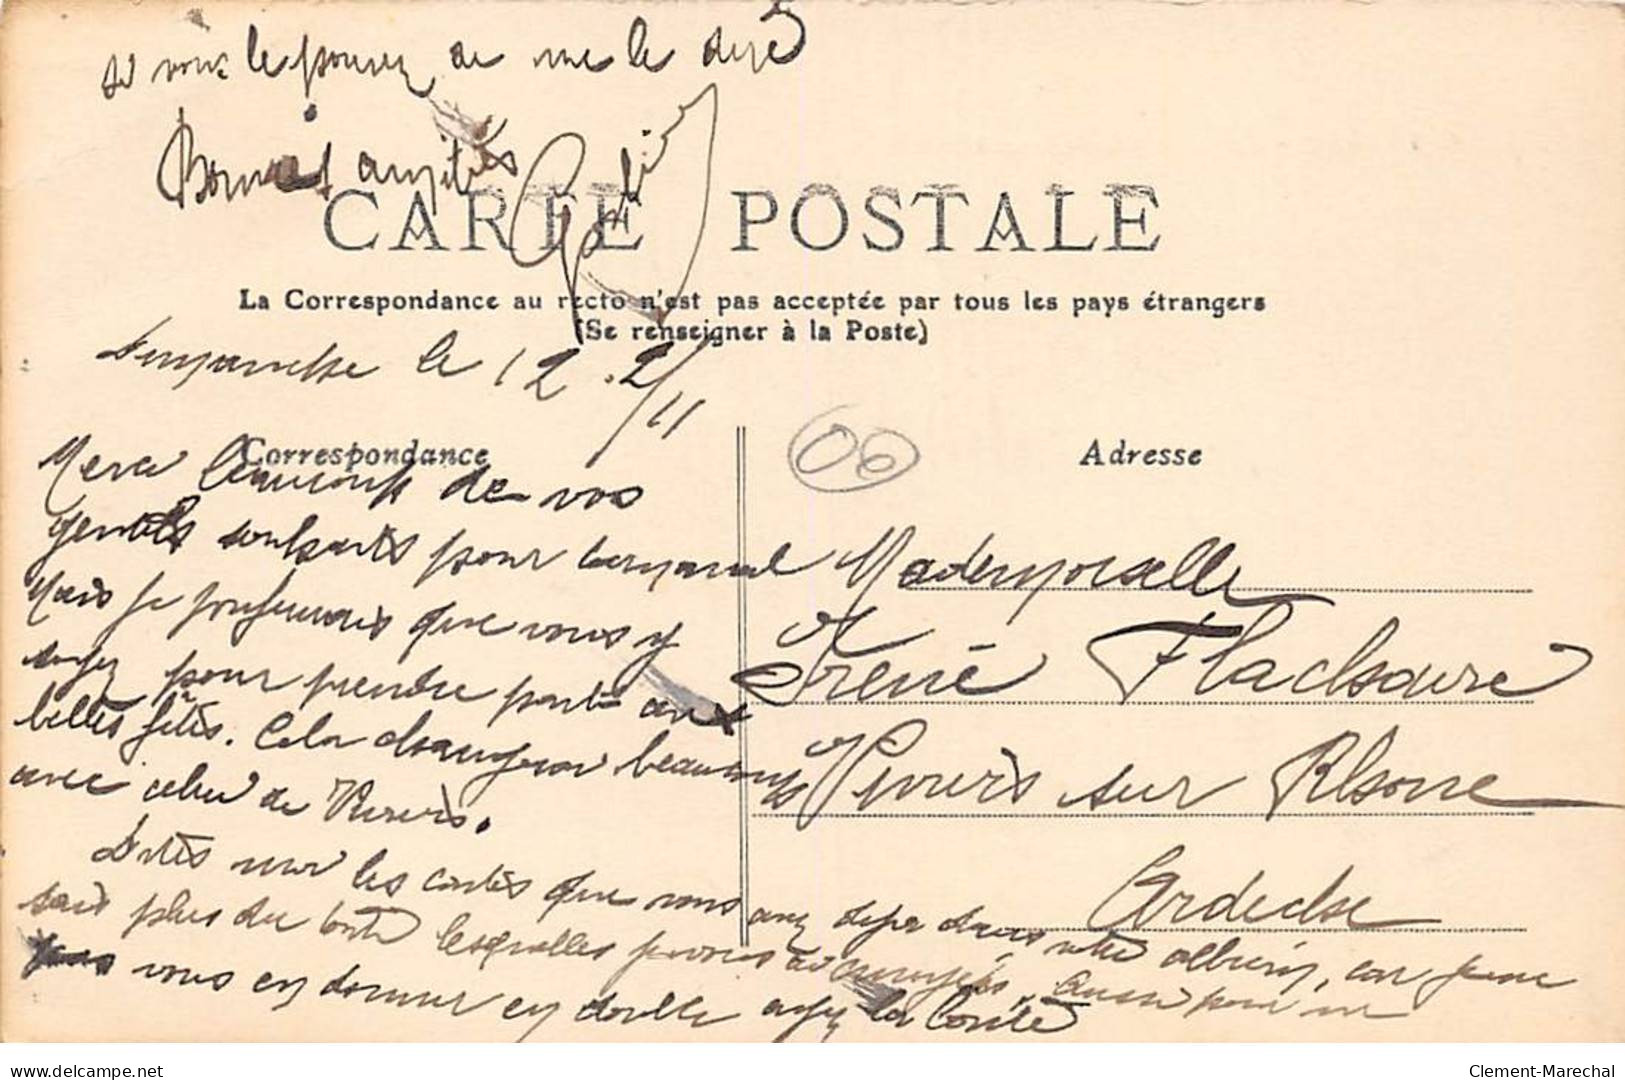 si vous le pouvez de me le dire
Bonnes amitiés
CARTE POSTALE
La Correspondance au recto n'est pas acceptée par tous les pays étrangers
(Se renseigner à la Poste)
Dimanche le 12.2/11
Correspondance
Adresse
00
Merci beaucoup de vos
gentils souhaits pour carnaval
Mais je préférerais que vous y
soyez pour prendre part aux
belles fêtes. Cela changerai beaucoup
avec celui de Viviers.
Dites moi les cartes que vous avez deja dans votre album, car je ne
sais plus du tout lesquelles je vous ai envoyées. Aussi pour ne
pas vous en donner en double ayez la bonté
Mademoiselle
Irène Flachaire
Viviers sur Rhone
Ardeche
delcampe.net
Clement-Marechal